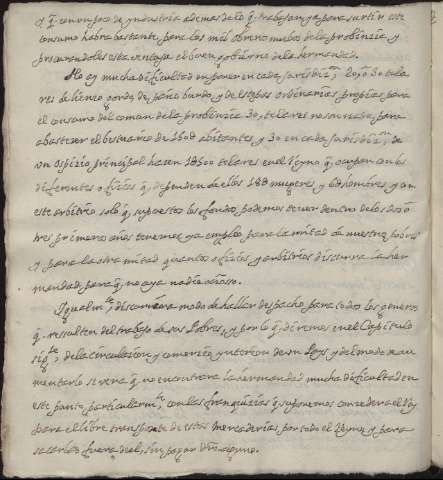 y q.e con un poco de yndustria ademas de lo q.e trabajan ya para surtir este
consumo habra bastante, para los mil obreros nuebos de la probinzia y
procurandoles esta ventaja el buen gobierno de la hermandad.
No ay mucha dificultad en poner en cada jurisdiz.on 20, ò 30 tela
res de lienzo gordo, de paño burdo, y de estofas ordinarias, propias para
el consumo del comun de la probinzia 30, telares no son nada, para
abastezer el bestuario de 150 8 abitantes, y 30 en cada jurisdiz.on de
un ospizio prinzipal hazen 18500 telares en el Reyno q.e ocuparan en los
diferentes ofizios q.e dependen de ellos 188 mugeres, y 68 hombres, y con
este arbitrio solo q.e supuestos los fondos, podemos tener dentro de los dos ò
tres primeros años tenemos ya empleo para la mitad de nuestros pobres
y para la otra mitad quantos ofizios, y arbitrios discurra la her
mandad, para q.e no aya nadie ozioso.
Igualm.te discurrira modo de hallar despacho para todos los generos
q.e resulten del trabajo de sus Pobres, y por lo q.e diremos en el Capitulo
sig.te de la circulazion, y comerzio ynterior de un Pays y del modo de au
mentarlo se vera q.e no encontrara la hermandad mucha dificultad en
este punto, particularm.te con las franquezias q.e suponemos conzedera el Rey
para el libre transporte de estas mercaderias, por todo el Reyno, y para
sacarlas fuera de el, sin pagar dro. alguno.